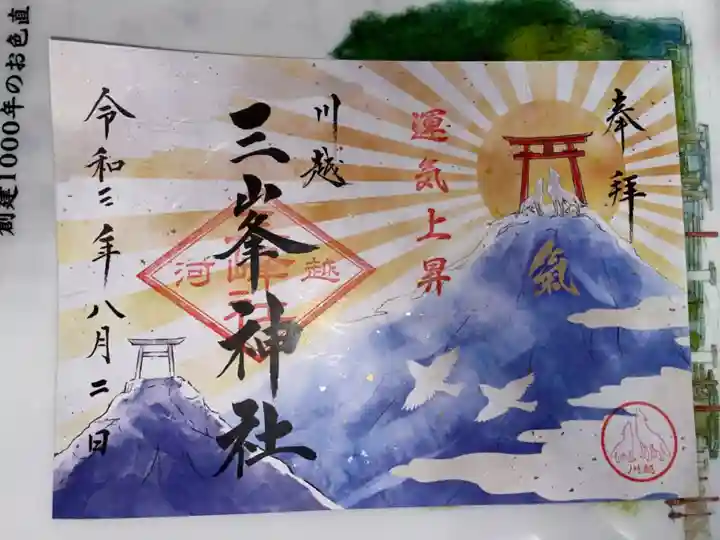 奉拝
運気上昇
氣
川越
三峯神社
河越
令和三年八月二日
創建1000年のお色直
川越